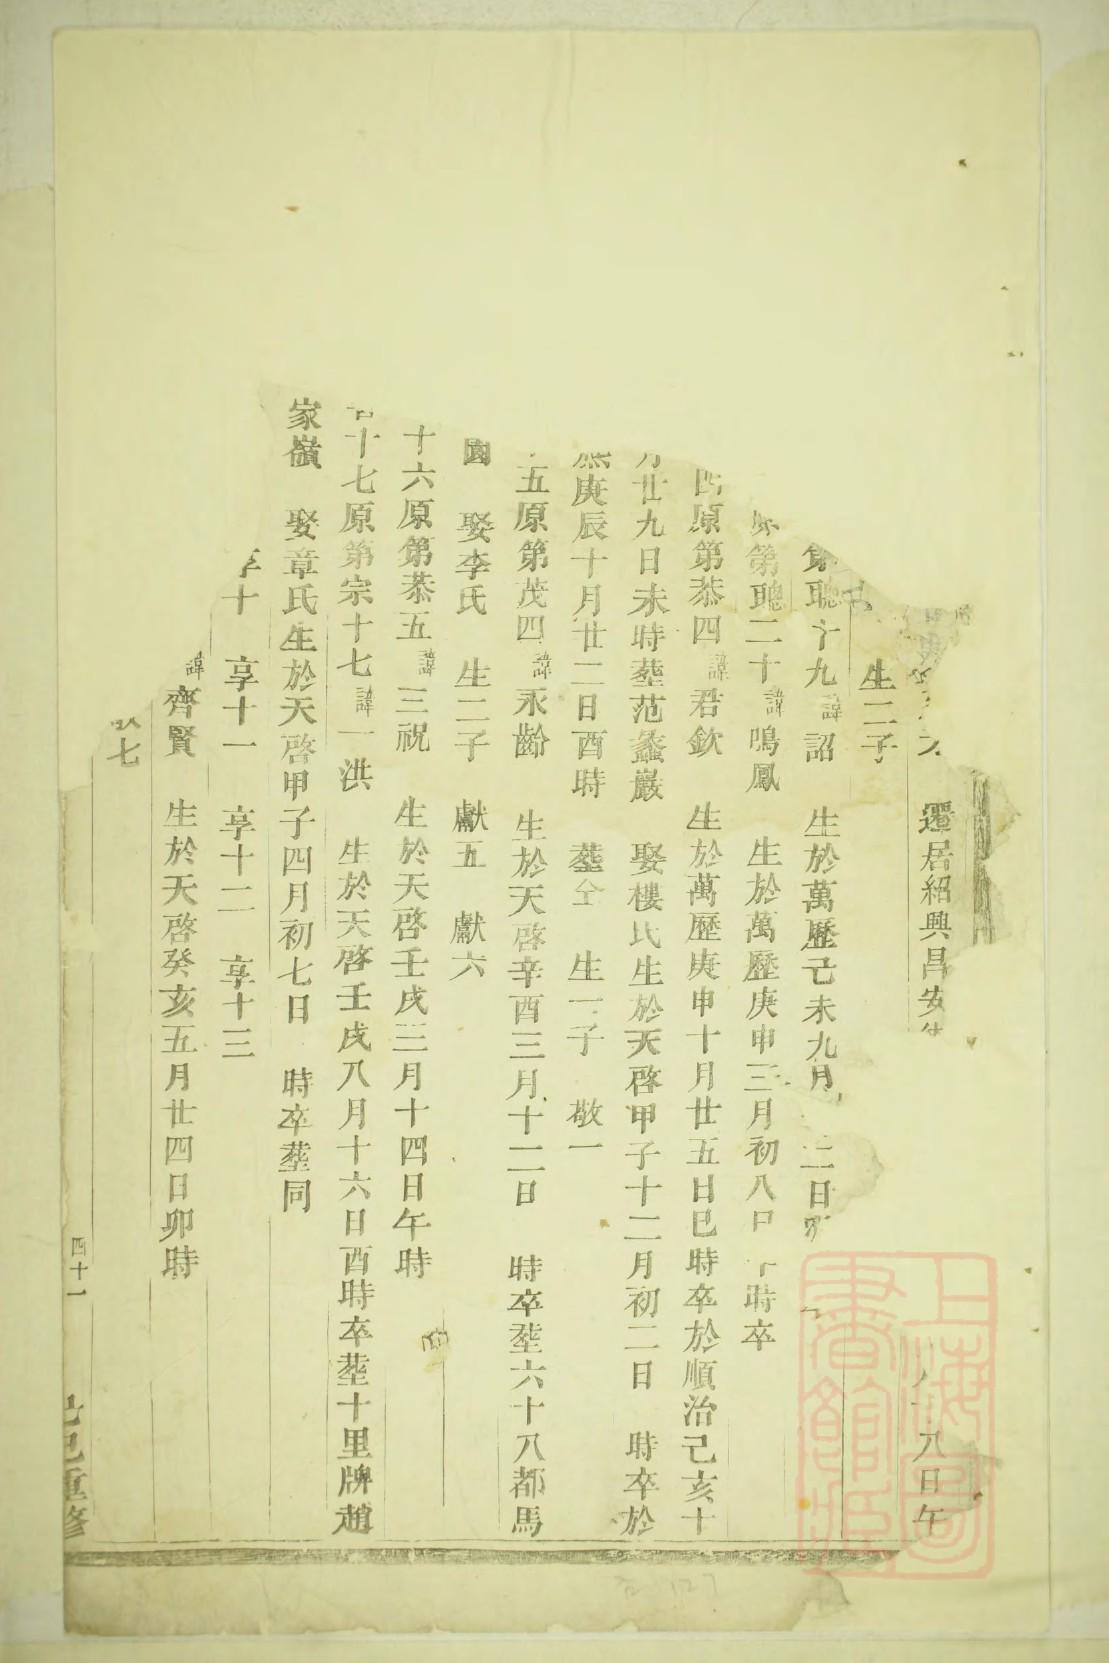 遷居紹興昌安
八日午
生二子
聰十九諱詔 生於萬歷己未九月 二日
第聰二十諱鳴鳳 生於萬歷庚申三月初八日 時卒
四原第恭四諱君欽 生於萬歷庚申十月廿五日巳時卒於順治己亥十
月廿九日未時塟范蠡巖 娶樓氏生於天啓甲子十二月初二日 時卒於
庚辰十月廿二日酉時 塟仝 生一子 敬一
五原第茂四諱永齡 生於天啓辛酉三月十二日 時卒塟六十八都馬
園 娶李氏 生二子 獻五 獻六
十六原第恭五諱三祝 生於天啓壬戌三月十四日午時
十七原第宗十七諱一洪 生於天啓壬戌八月十六日酉時卒塟十里牌趙
家嶺 娶章氏生於天啓甲子四月初七日 時卒塟同
享十 享十一 享十二 享十三
諱齊賢 生於天啓癸亥五月廿四日卯時
七
四十一
巳重修
上海圖書館藏